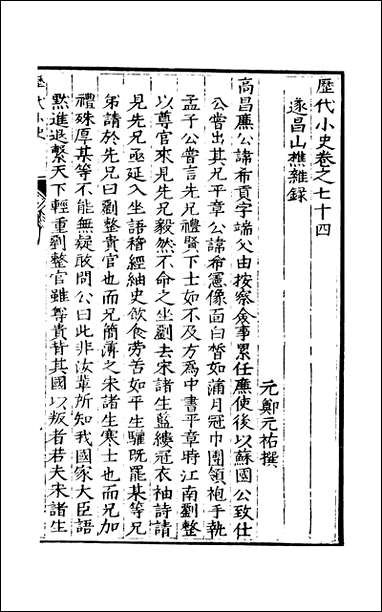 歷代小史卷之七十四
遂昌山樵雜録
元鄭元祐撰
高昌廉公諱希貢字端父由按察僉事累任廉使後以蘇國公致仕
公嘗出其兄平章公諱希憲像面白皙如滿月冠巾團領袍手執
孟子公嘗言先兄禮賢下士如不及方為中書平章時江南劉整
以尊官來見先兄毅然不命之坐劉去宋諸生藍縷冠衣袖詩請
見先兄亟延入坐語稽經紬史飲食勞苦如平生驩既罷某等兄
弟請於先兄曰劉整貴官也而兄簡薄之宋諸生寒士也而兄加
禮殊厚某等不能無疑敢問公曰此非汝輩所知我國家大臣語
黙進退繫天下輕重劉整官雖尊貴背其國以叛者若夫宋諸生
歷代小史